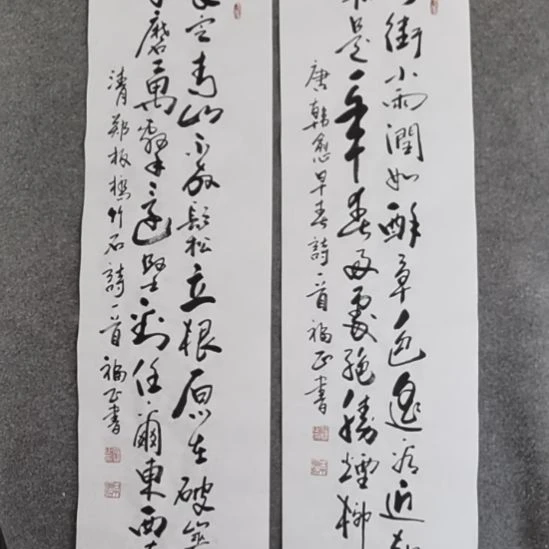 街小雨潤如酥草色遥看近却
是一年春好處絶勝煙柳
唐韓愈早春詩一首福正書
定青山不放鬆立根原在破
磨萬擊還堅勁任爾東西
清鄭板橋竹石詩一首福正書